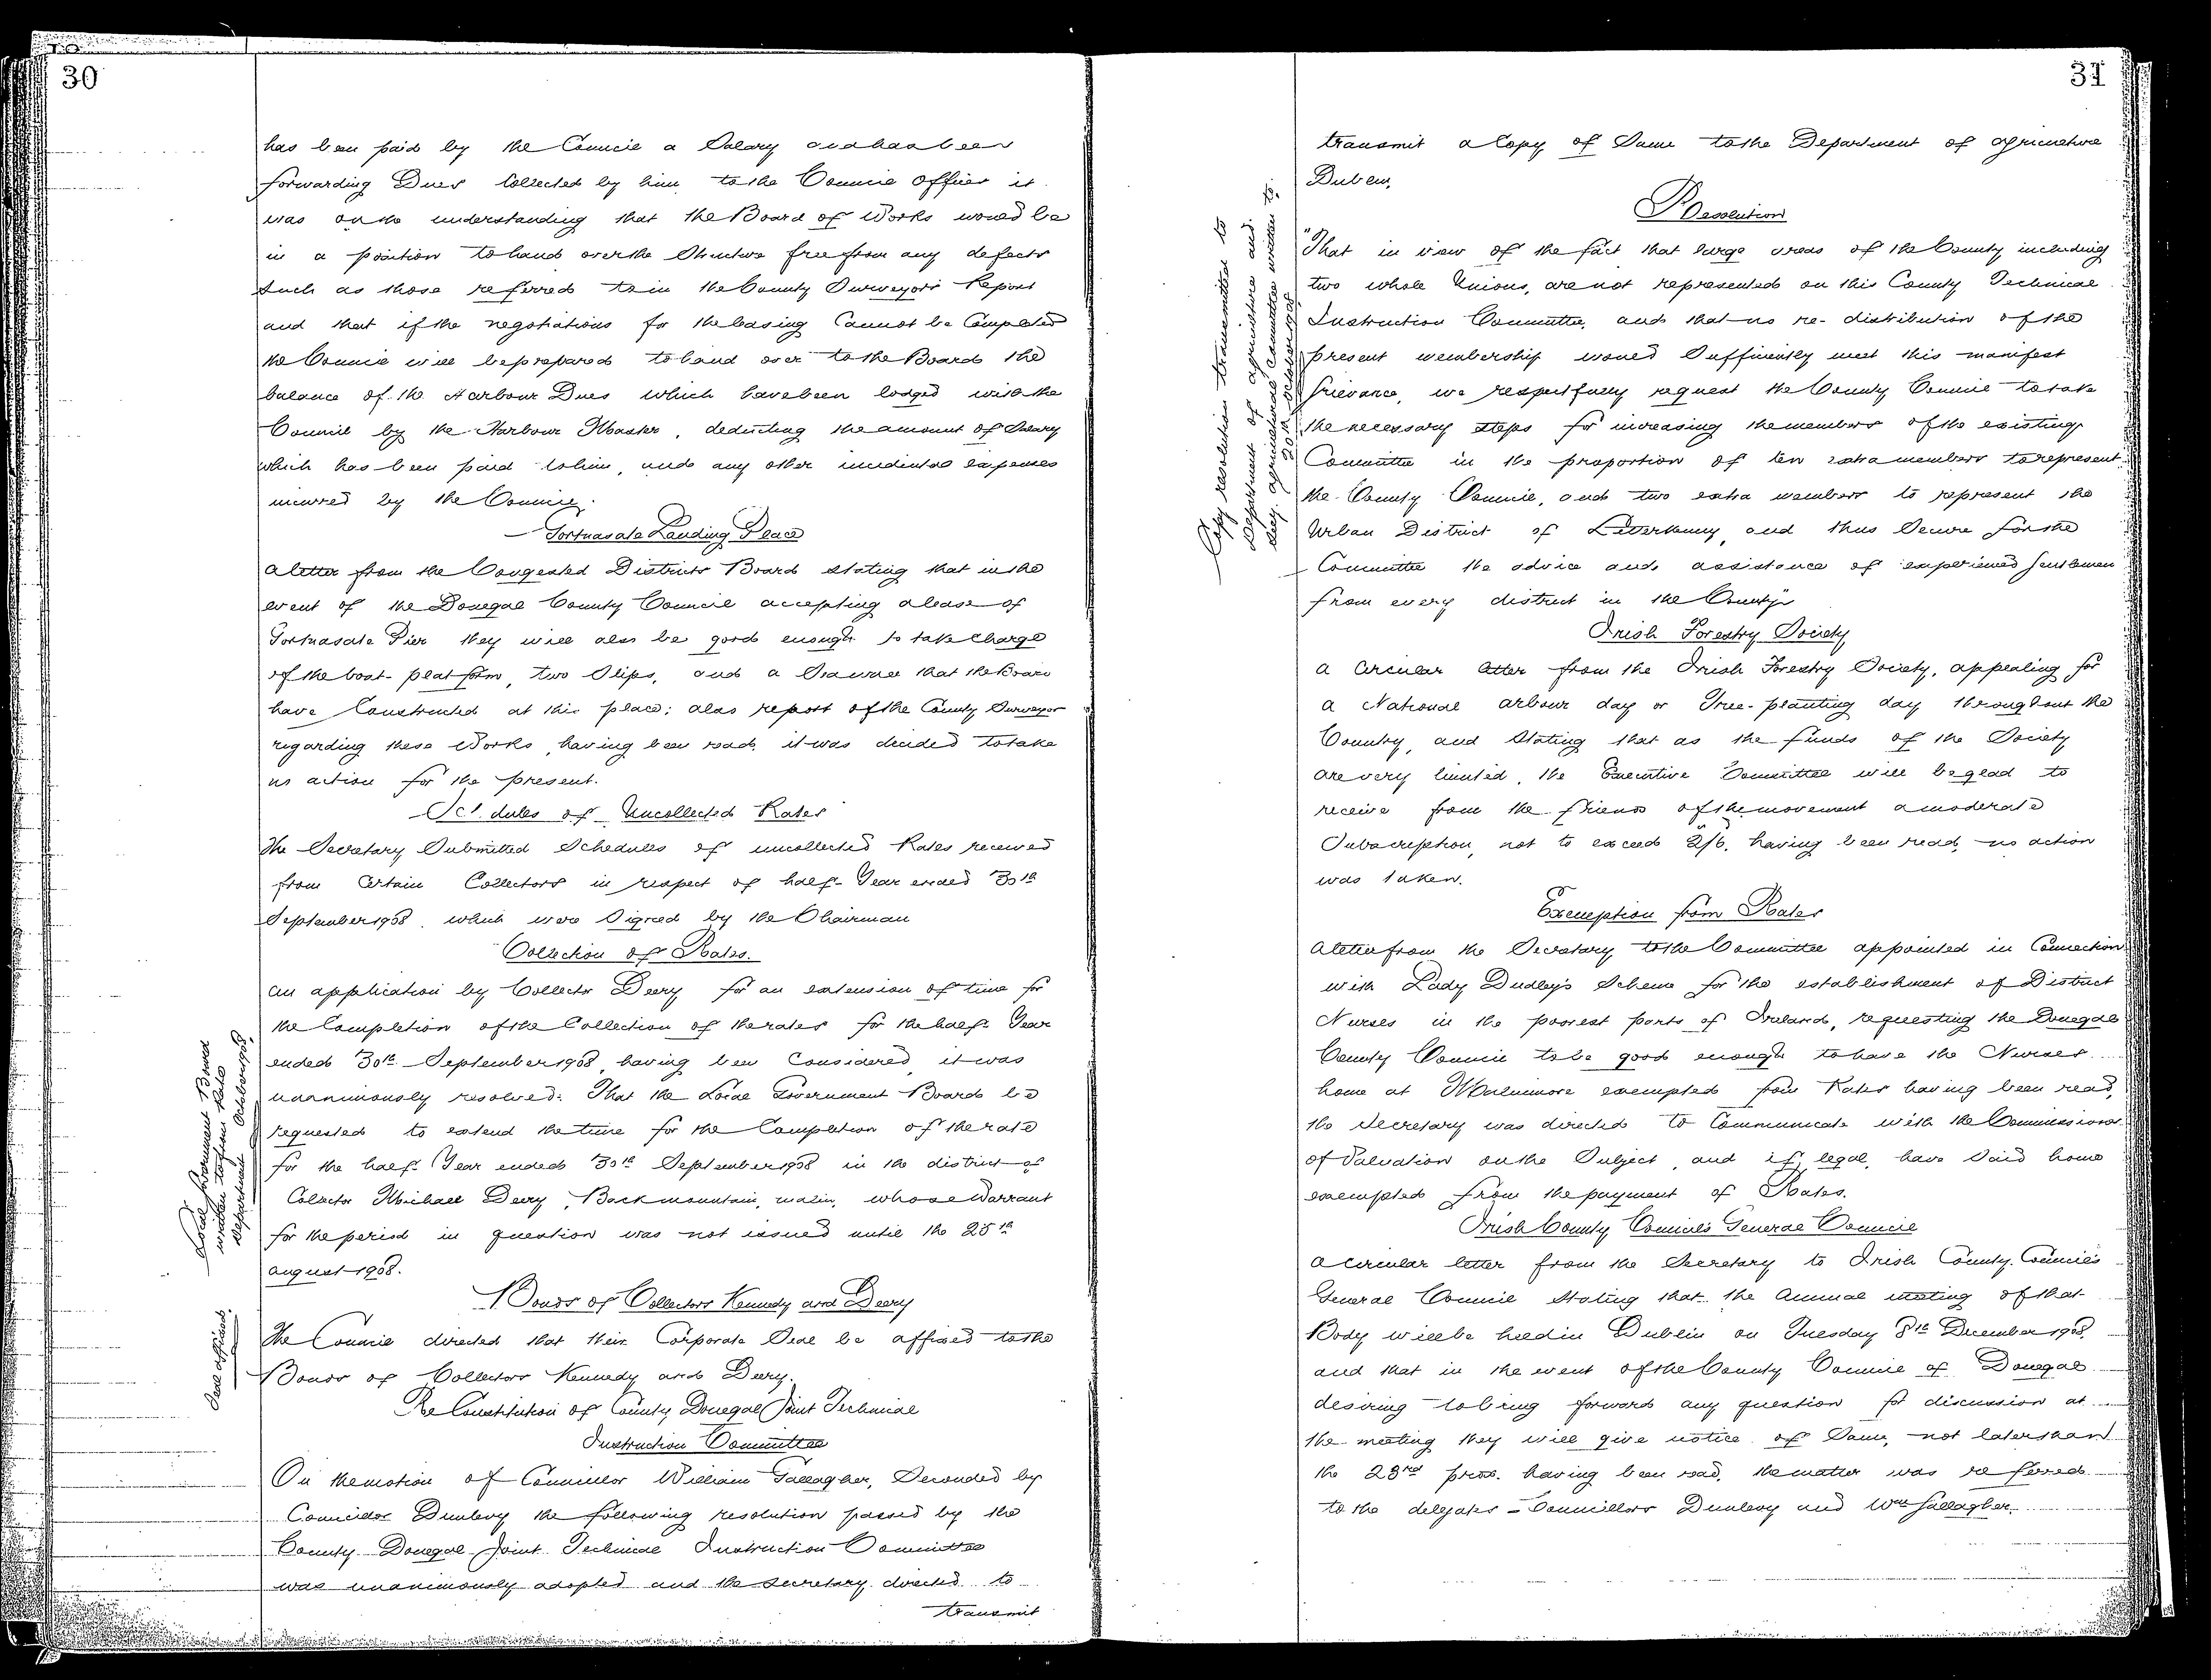 30
has been paid by the Council a Salary and has been
forwarding Dues Collected by him to the Council Offices it
was on the understanding that the Board of Works would be
in a position to hand over the Structure free from any defects
such as those referred to in the County Surveyors Report
and that if the negotiations for the leasing Cannot be Completed
the Council will be prepared to hand over to the Board the
balance of the Harbour Dues which have been lodged with the
Council by the Harbour Master, deducting the amount of Salary
which has been paid to him, and any other incidental expenses
incurred by the Council.
Portnasate Landing Place
A letter from the Congested Districts Board stating that in the
event of the Donegal County Council accepting a lease of
Portnasate Pier they will also be good enough to take charge
of the boat-platform, two Slips, and a that the Board
have Constructed at this place; also report of the County Surveyor
regarding these Works, having been read, it was decided to take
no action for the present.
Schedules of Uncollected Rates
The Secretary Submitted Schedules of uncollected Rates received
from Certain Collectors in respect of half-Year ended 30th
September 1908, which were Signed by the Chairman
Collection of Rates.
An application by Collector Deery for an extension of time for
the Completion of the Collection of the rates for the half Year
ended 30th September 1908, having been Considered, it was
unanimously resolved: That the Local Government Board be
requested to extend the time for the Completion of the rate
for the half Year ended 30th September 1908 in the district of
Collector Michael Deery, Backmountain, Malin, whose Warrant
for the period in question was not issued until the 25th
August 1908.
Local Government Board
written to
Department October 1908.
Bonds of Collectors Kennedy and Deery
The Council directed that their Corporate Seal be affixed to the
Bonds of Collectors Kennedy and Deery.
Seal affixed.
Re Constitution of County Donegal Joint Technical
Instruction Committee
On the motion of Councillor William Gallagher, Seconded by
Councillor Dunlevy the following resolution passed by the
County Donegal Joint Technical Instruction Committee
was unanimously adopted and the Secretary directed to
transmit
31
transmit a Copy of Same to the Department of Agriculture
Dublin,
Resolution
"That in view of the fact that large areas of the County including
two whole Unions, are not represented on this County Technical
Instruction Committee, and that no re-distribution of the
present membership would Sufficiently meet this manifest
grievance, we respectfully request the County Council to take
the necessary steps for increasing the members of the existing
Committee in the proportion of ten extra members to represent
the County Council, and two extra members to represent the
Urban District of Letterkenny, and thus Secure for the
Committee the advice and assistance of experienced gentlemen
from every district in the County"
Copy resolution transmitted to
Department of Agriculture and
Secy. Agricultural Committee written to.
20th October 1908
Irish Forestry Society
A Circular letter from the Irish Forestry Society, appealing for
a National arbour day or Tree-planting day throughout the
Country, and Stating that as the funds of the Society
are very limited, the Executive Committee will be glad to
receive from the friends of the movement a moderate
Subscription, not to exceed 2/6, having been read, no action
was taken.
Exemption from Rates
A letter from the Secretary to the Committee appointed in Connection
with Lady Dudley's Scheme for the establishment of District
Nurses in the poorest parts of Ireland, requesting the Donegal
County Council to be good enough to have the Nurses
home at Mulnimore exempted from Rates having been read,
the Secretary was directed to Communicate with the Commissioner
of Valuation on the Subject, and if legal, have Said home
exempted from the payment of Rates.
Irish County Councils General Council
A circular letter from the Secretary to Irish County Councils
General Council Stating that the Annual meeting of that
Body will be held in Dublin on Tuesday 8th December 1908,
and that in the event of the County Council of Donegal
desiring to bring forward any question for discussion at
the meeting they will give notice of Same, not later than
the 23rd prox. having been read, the matter was referred
to the delegates - Councillors Dunlevy and Wm Gallagher.